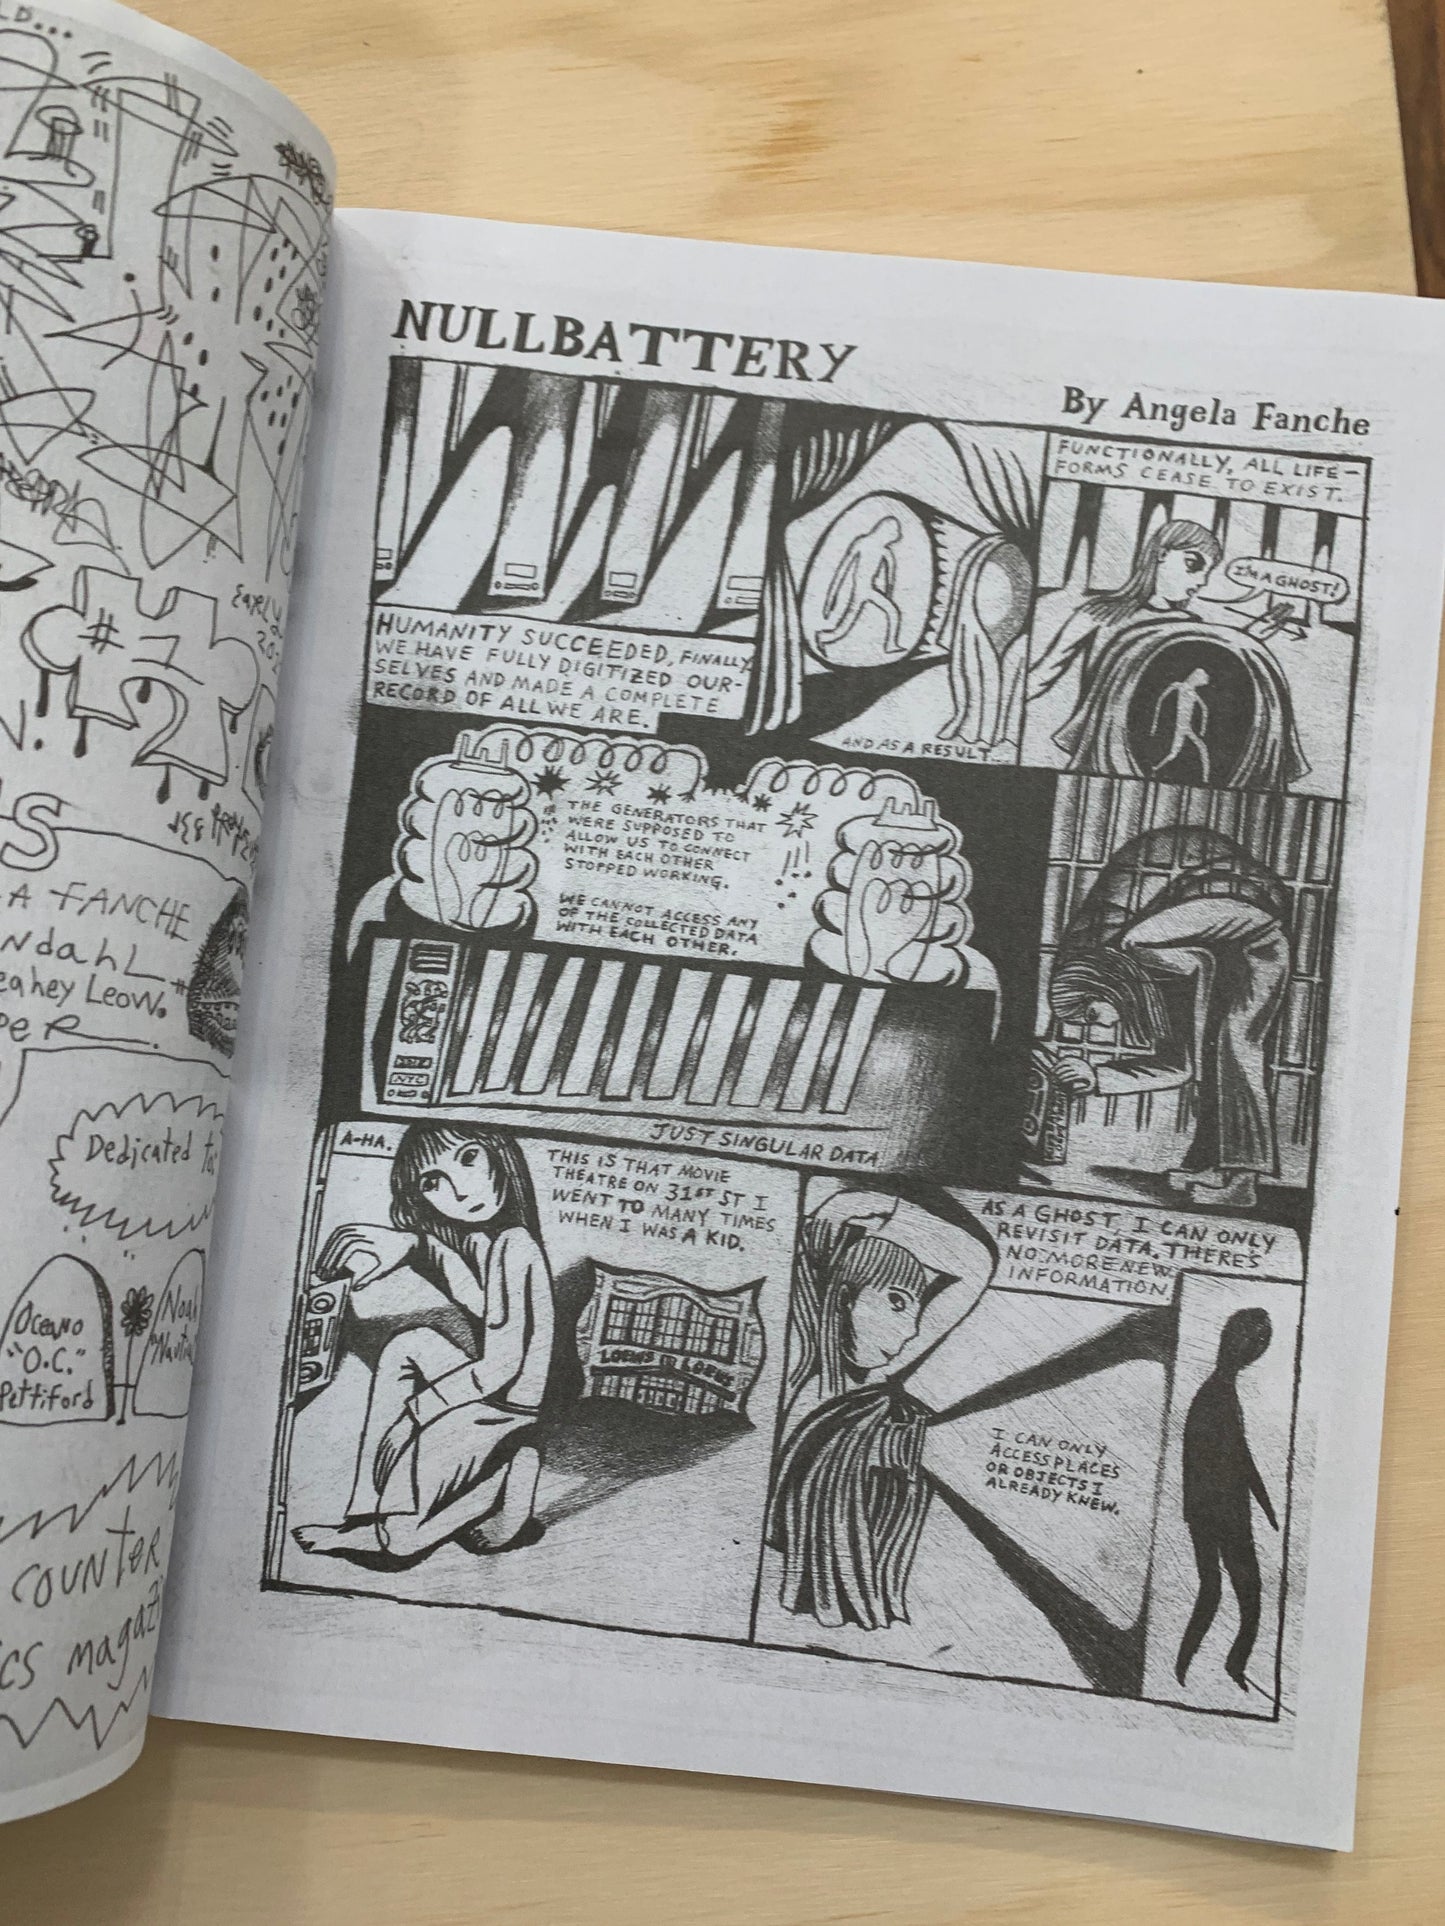 LD...
#
2
EARLY
N.
S
A FANCHE
NdahL
eahey Leow.
peR
Dedicated to:
Oceano
"O.C."
Pettiford
Noah
COUNTER
CS magazi
NULLBATTERY
By Angela Fanche
HUMANITY SUCCEEDED, FINALLY
WE HAVE FULLY DIGITIZED OUR-
SELVES AND MADE A COMPLETE
RECORD OF ALL WE ARE.
AND AS A RESULT...
FUNCTIONALLY, ALL LIFE-
FORMS CEASE TO EXIST.
I'M A GHOST!
THE GENERATORS THAT
WERE SUPPOSED TO
ALLOW US TO CONNECT
WITH EACH OTHER
STOPPED WORKING.
WE CANNOT ACCESS ANY
OF THE COLLECTED DATA
WITH EACH OTHER.
NYC
JUST SINGULAR DATA
A-HA.
THIS IS THAT MOVIE
THEATRE ON 31ST ST I
WENT TO MANY TIMES
WHEN I WAS A KID.
AS A GHOST, I CAN ONLY
REVISIT DATA. THERE'S
NO MORE NEW
INFORMATION
I CAN ONLY
ACCESS PLACES
OR OBJECTS I
ALREADY KNEW.